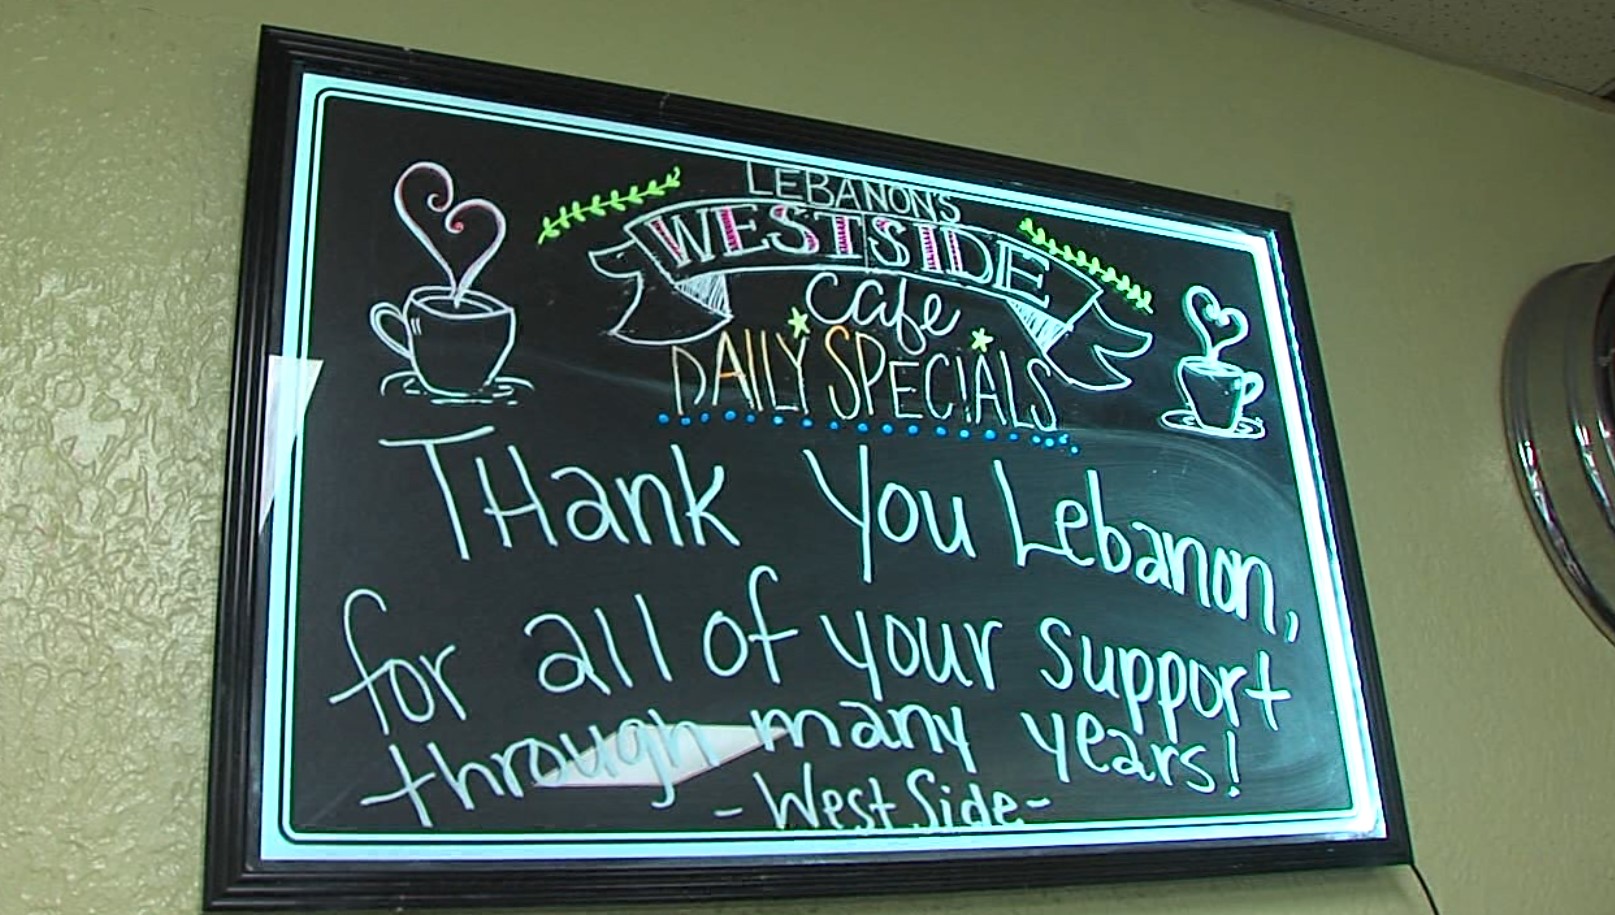 LEBANON'S
WESTSIDE
cafe
DAILY SPECIALS
THank You Lebanon,
for all of your support
through many years!
- West Side -